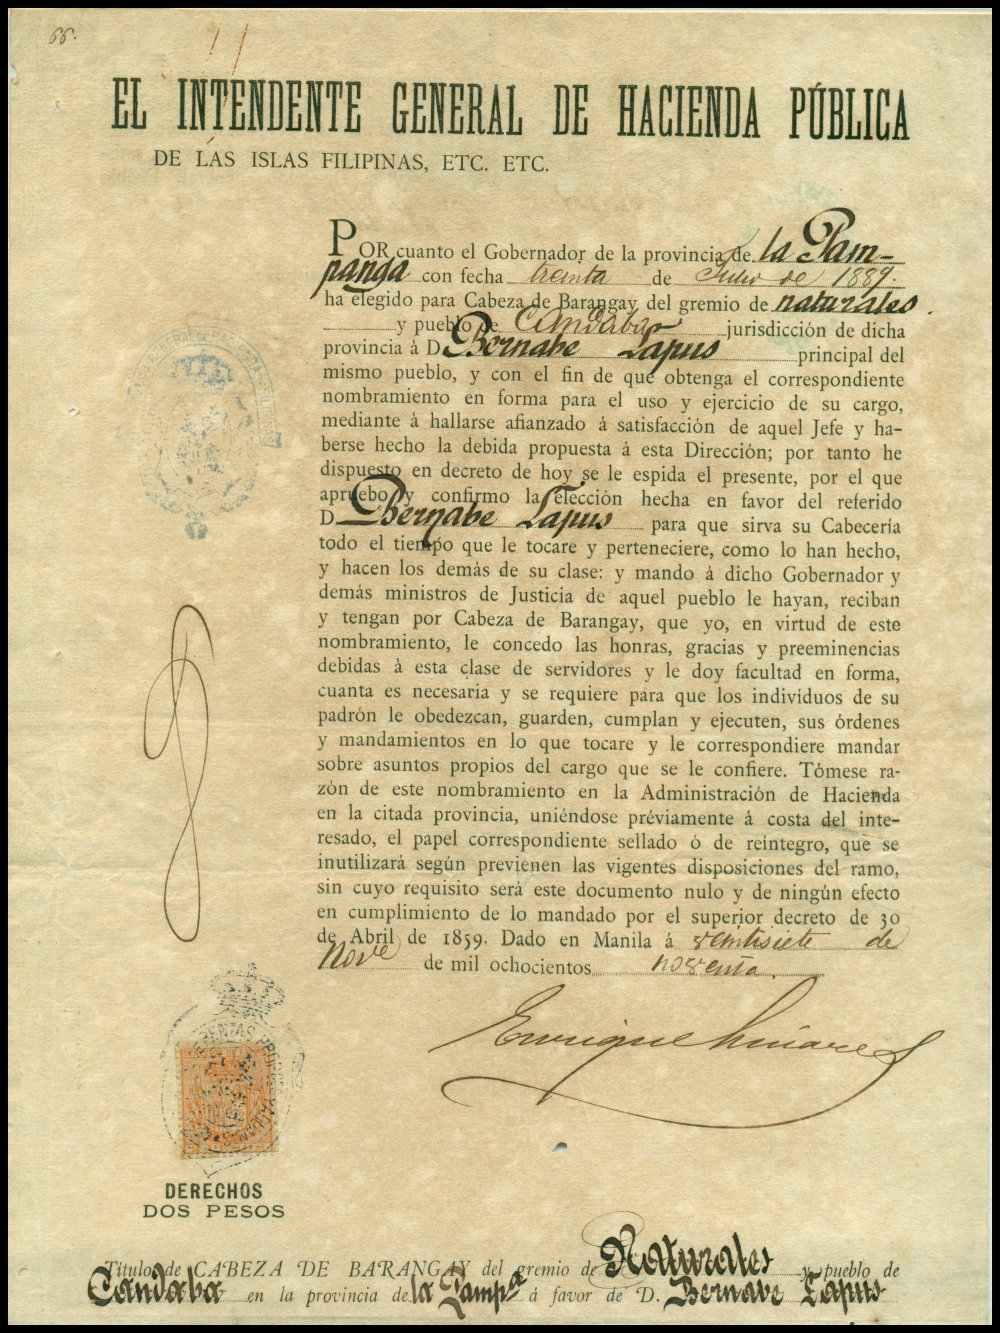 66.
EL INTENDENTE GENERAL DE HACIENDA PÚBLICA
DE LAS ISLAS FILIPINAS, ETC. ETC.
POR cuanto el Gobernador de la provincia de la Pam-
panga con fecha treinta de Julio de 1889.
ha elegido para Cabeza de Barangay del gremio de naturales.
y pueblo de Candaba jurisdicción de dicha
provincia á D. Bernabe Lapus principal del
mismo pueblo, y con el fin de que obtenga el correspondiente
nombramiento en forma para el uso y ejercicio de su cargo,
mediante á hallarse afianzado á satisfacción de aquel Jefe y ha-
berse hecho la debida propuesta á esta Dirección; por tanto he
dispuesto en decreto de hoy se le espida el presente, por el que
apruebo y confirmo la elección hecha en favor del referido
D. Bernabe Lapus para que sirva su Cabecería
todo el tiempo que le tocare y perteneciere, como lo han hecho,
y hacen los demás de su clase: y mando á dicho Gobernador y
demás ministros de Justicia de aquel pueblo le hayan, reciban
y tengan por Cabeza de Barangay, que yo, en virtud de este
nombramiento, le concedo las honras, gracias y preeminencias
debidas á esta clase de servidores y le doy facultad en forma,
cuanta es necesaria y se requiere para que los individuos de su
padrón le obedezcan, guarden, cumplan y ejecuten, sus órdenes
y mandamientos en lo que tocare y le correspondiere mandar
sobre asuntos propios del cargo que se le confiere. Tómese ra-
zón de este nombramiento en la Administración de Hacienda
en la citada provincia, uniéndose préviamente á costa del inte-
resado, el papel correspondiente sellado ó de reintegro, que se
inutilizará según previenen las vigentes disposiciones del ramo,
sin cuyo requisito será este documento nulo y de ningún efecto
en cumplimiento de lo mandado por el superior decreto de 30
de Abril de 1859. Dado en Manila á veintisiete de
Nove de mil ochocientos noventa.
Enrique Linares
DERECHOS
DOS PESOS
Título de CABEZA DE BARANGAY del gremio de Naturales y pueblo de
Candaba en la provincia de la Pampª á favor de D. Bernabe Lapus